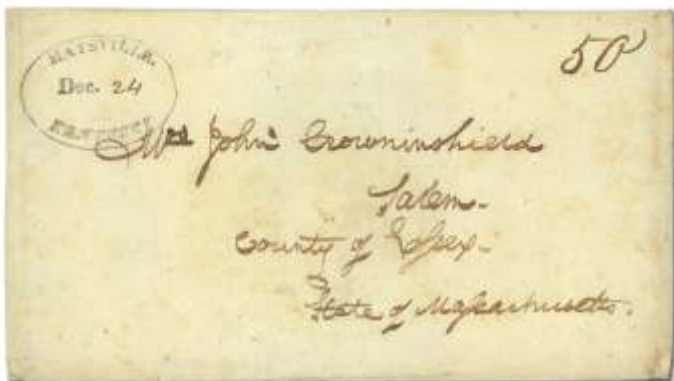 MAYSVILLE.
Dec. 24
KENTUCKY
50
Mrs John Crowninshield
Salem.
County of Essex.
State of Massachusetts.